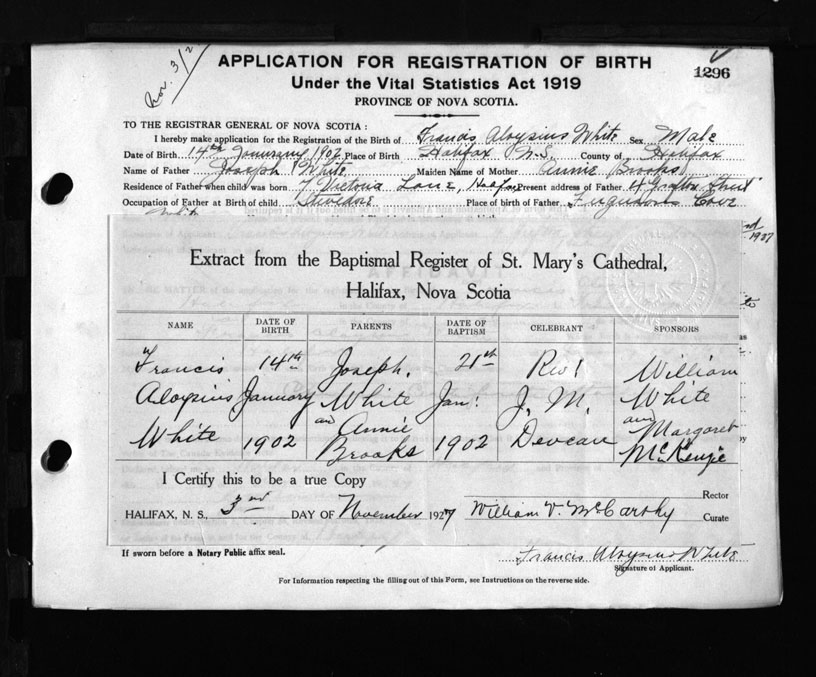 Nov. 3/2
APPLICATION FOR REGISTRATION OF BIRTH
1296
Under the Vital Statistics Act 1919
PROVINCE OF NOVA SCOTIA.
TO THE REGISTRAR GENERAL OF NOVA SCOTIA :
I hereby make application for the Registration of the Birth of Francis Aloysius White Sex Male
Date of Birth 14th January 1902 Place of Birth Halifax N.S County of Halifax
Name of Father Joseph White Maiden Name of Mother Annie Brooks
Residence of Father when child was born 7 Victoria Lane, Halifax Present address of Father Grafton Street
Occupation of Father at Birth of child Stevedore Place of birth of Father Fergusons Cove
White
1927
Extract from the Baptismal Register of St. Mary's Cathedral,
Halifax, Nova Scotia
NAME DATE OF BIRTH PARENTS DATE OF BAPTISM CELEBRANT SPONSORS
Francis 14th Joseph. 21st Rev! William
Aloysius January White Jan: J. M. White
and Annie and Margaret
White 1902 Brooks 1902 Deveau McKenzie
I Certify this to be a true Copy
Rector
HALIFAX, N. S., 3rd DAY OF November 1927 William V. McCarthy Curate
If sworn before a Notary Public affix seal. Francis Aloysius White
Signature of Applicant.
For Information respecting the filling out of this Form, see Instructions on the reverse side.